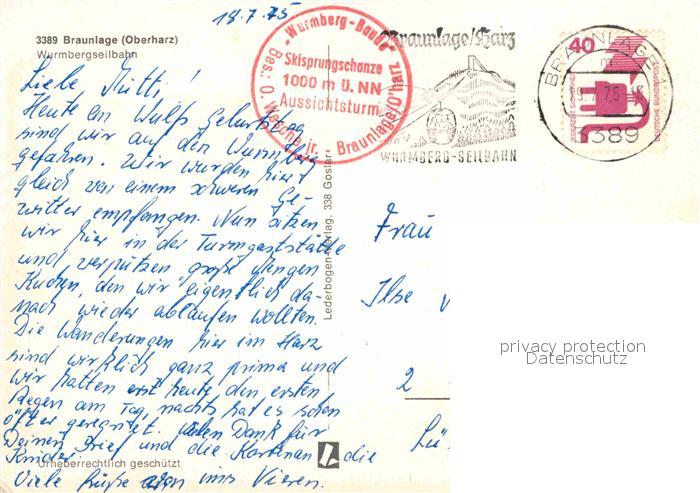 18.7.75
3389 Braunlage (Oberharz)
Wurmbergseilbahn
Liebe Mutti!
Heute an Wulfs Geburtstag
sind wir auf den Wurmberg
gefahren. Wir wurden hier
gleich von einem schweren Ge-
witter empfangen. Nun sitzen
wir hier in der Turmgaststätte
und verputzen große Mengen
Kuchen, den wir eigentlich da-
nach wieder ablaufen wollten.
Die Wanderungen hier im Harz
sind wirklich ganz prima und
wir hatten erst heute den ersten
Regen am Tag, nachts hat es schon
öfter geregnet. Vielen Dank für
Deinen Brief und die Karten an die
Kinder.
Viele Grüße von uns Vieren.
Urheberrechtlich geschützt
Lederbogen-Verlag, 338 Goslar
"Wurmberg-Baude"
Skisprungschanze
1000 m ü. NN
Aussichtsturm
Bes.: O. jr. Braunlage/O'harz
Braunlage/Harz
WURMBERG-SEILBAHN
BRAUNLAGE 1
75
3389
40
DEUTSCHE BUNDESPOST
Frau
Ilse
2
Lü
privacy protection
Datenschutz